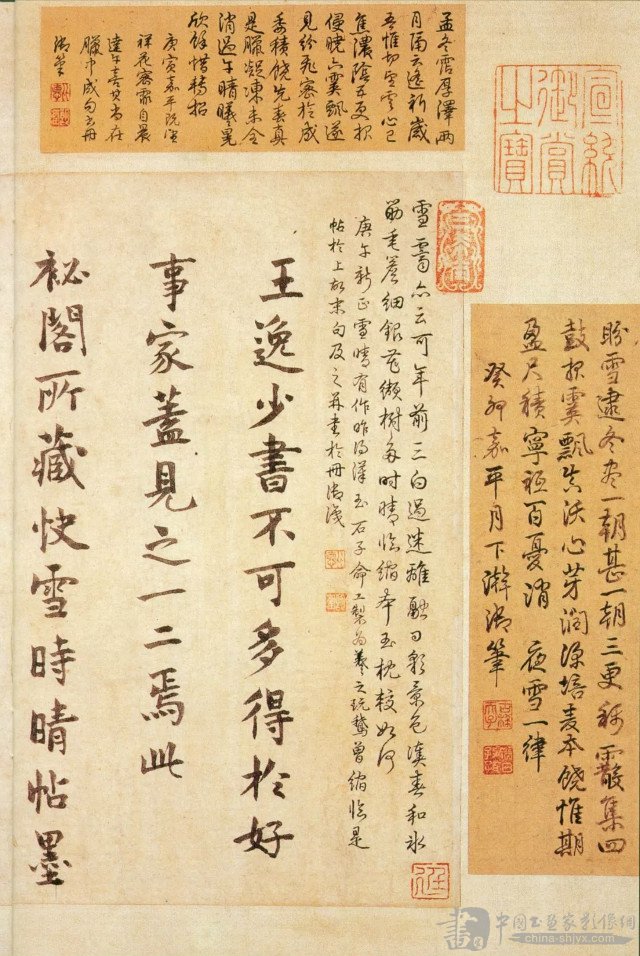 孟冬霑厚澤兩
月隔云遙祈歲
吾惟切望雲心已
焦濃陰五更報
侵曉六霙飄遂
見紛飛密於成
委積饒先春真
是臘凝凍未全
消過午晴曦晃
欣餘惜轉招
庚寅嘉平既
祥花密霰自晨
達午喜其在
臘中成句書冊
御筆
宣統
御賞
之寶
盼雪逮冬盡一朝甚一朝三更稀霰集四
鼓報霙飄真沃心芽潤深培麥本饒惟期
盈尺積寧祗百憂消 夜雪一律
癸卯嘉平月下澣御筆
雪霽亦云可年前三白過迷離融日彩景色春和冰
筋垂簷細銀花綴樹多時晴臨縮本玉枕較如何
庚午新正雪晴有作昨得漢玉石子命工製為羲之玩鵞曾縮臨是
帖於上故末句及之并書於冊御識
王逸少書不可多得於好
事家蓋見之一二焉此
祕閣所藏快雪時晴帖墨
書
中国书画家影像網
china-shjyx.com